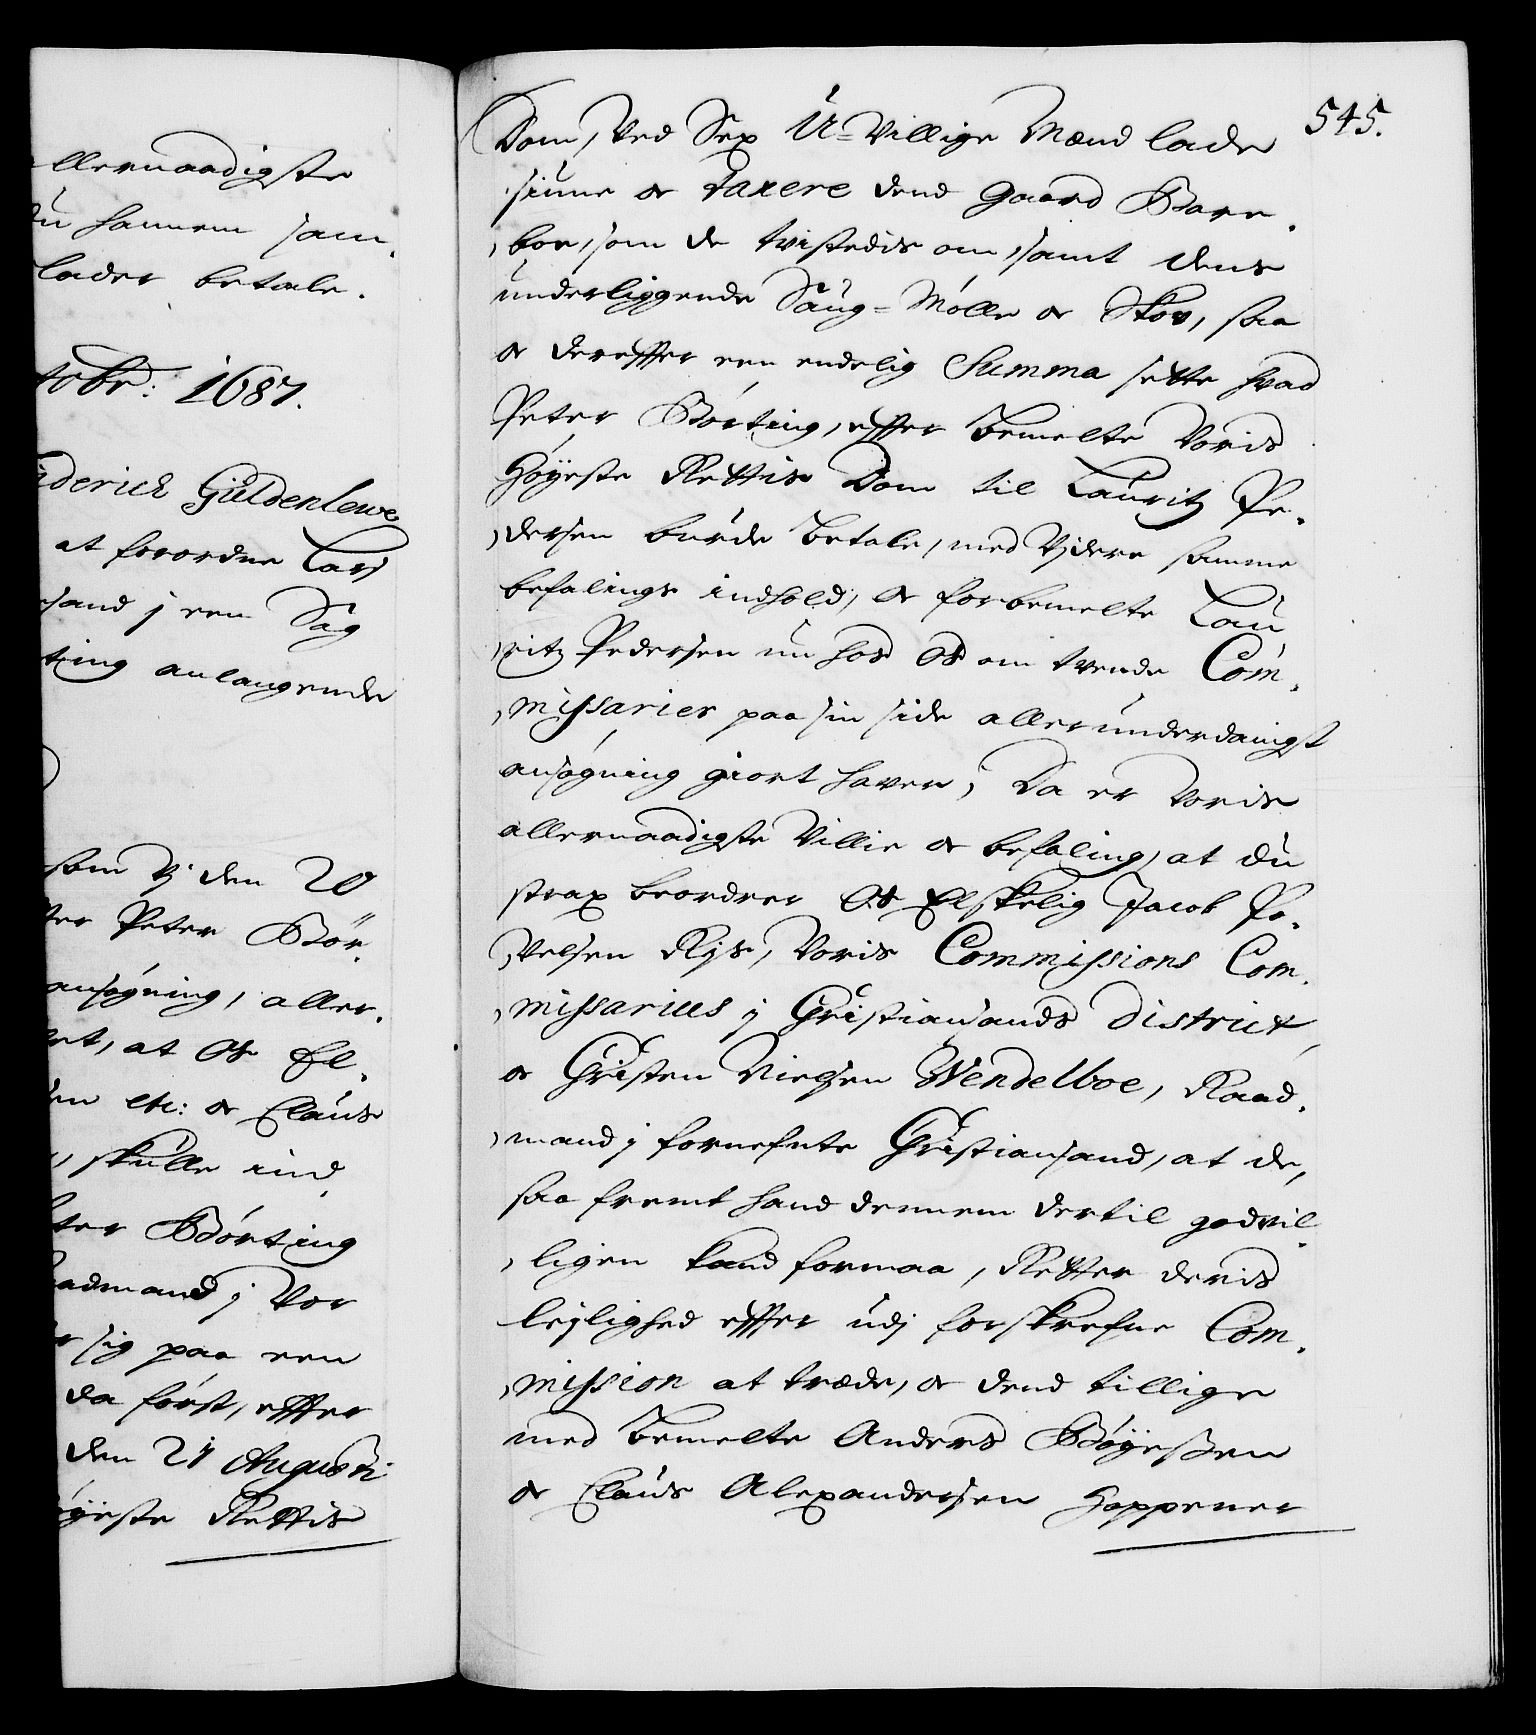 llernaadigste
du hannem sam¬
lader betale.
tobr: 1687.
iderich Güldenlewe
at forordne Lars
sand j een Sag
ting anlangende
som Vj den 20
ter Peter Bör¬
ansøgning, aller¬
et, at Os El¬
sen etc: oc Claus
, skulle ind
ter Börting
aadmand j Vor
r sig paa een
da först, effter
den 21 Augusti
öyeste Rettis
545.
Dom, Ved Sex U=Villige Mænd lade
siune oc taxere dend Gaard Bare¬
boe, som de tvistedis om, samt dens
underliggende Saug=Mølle oc Skov, saa
oc dereffter een endelig Summa sette hvad
Peter Börting, effter bemelte Voris
Höyeste Rettis Dom til Lauritz Pe¬
dersen burde betale, med Videre samme
befalings indhold, oc forbemelte Lau
ritz Pedersen nu hos Os om tvende Com¬
missarier paa sin side allerunderdanigst
ansøgning giort haver, Da er Voris
allernaadigste Villie oc befaling, at du
strax beordrer Os Elskelig Jacob Po¬
velsen Rys, Voris Commissions Com¬
missarius j Christiansands District,
oc Christen Nielsen Wendelboe, Raad¬
mand j fornefnte Christiansand, at de,
saa fremt hand dennem dertil godvil¬
ligen kand formaa, Retter deris
lejlighed effter udj forskrefne Com¬
mission at træde, oc dend tillige
med bemelte Anders Böyessen
oc Claus Alexandersen Happener